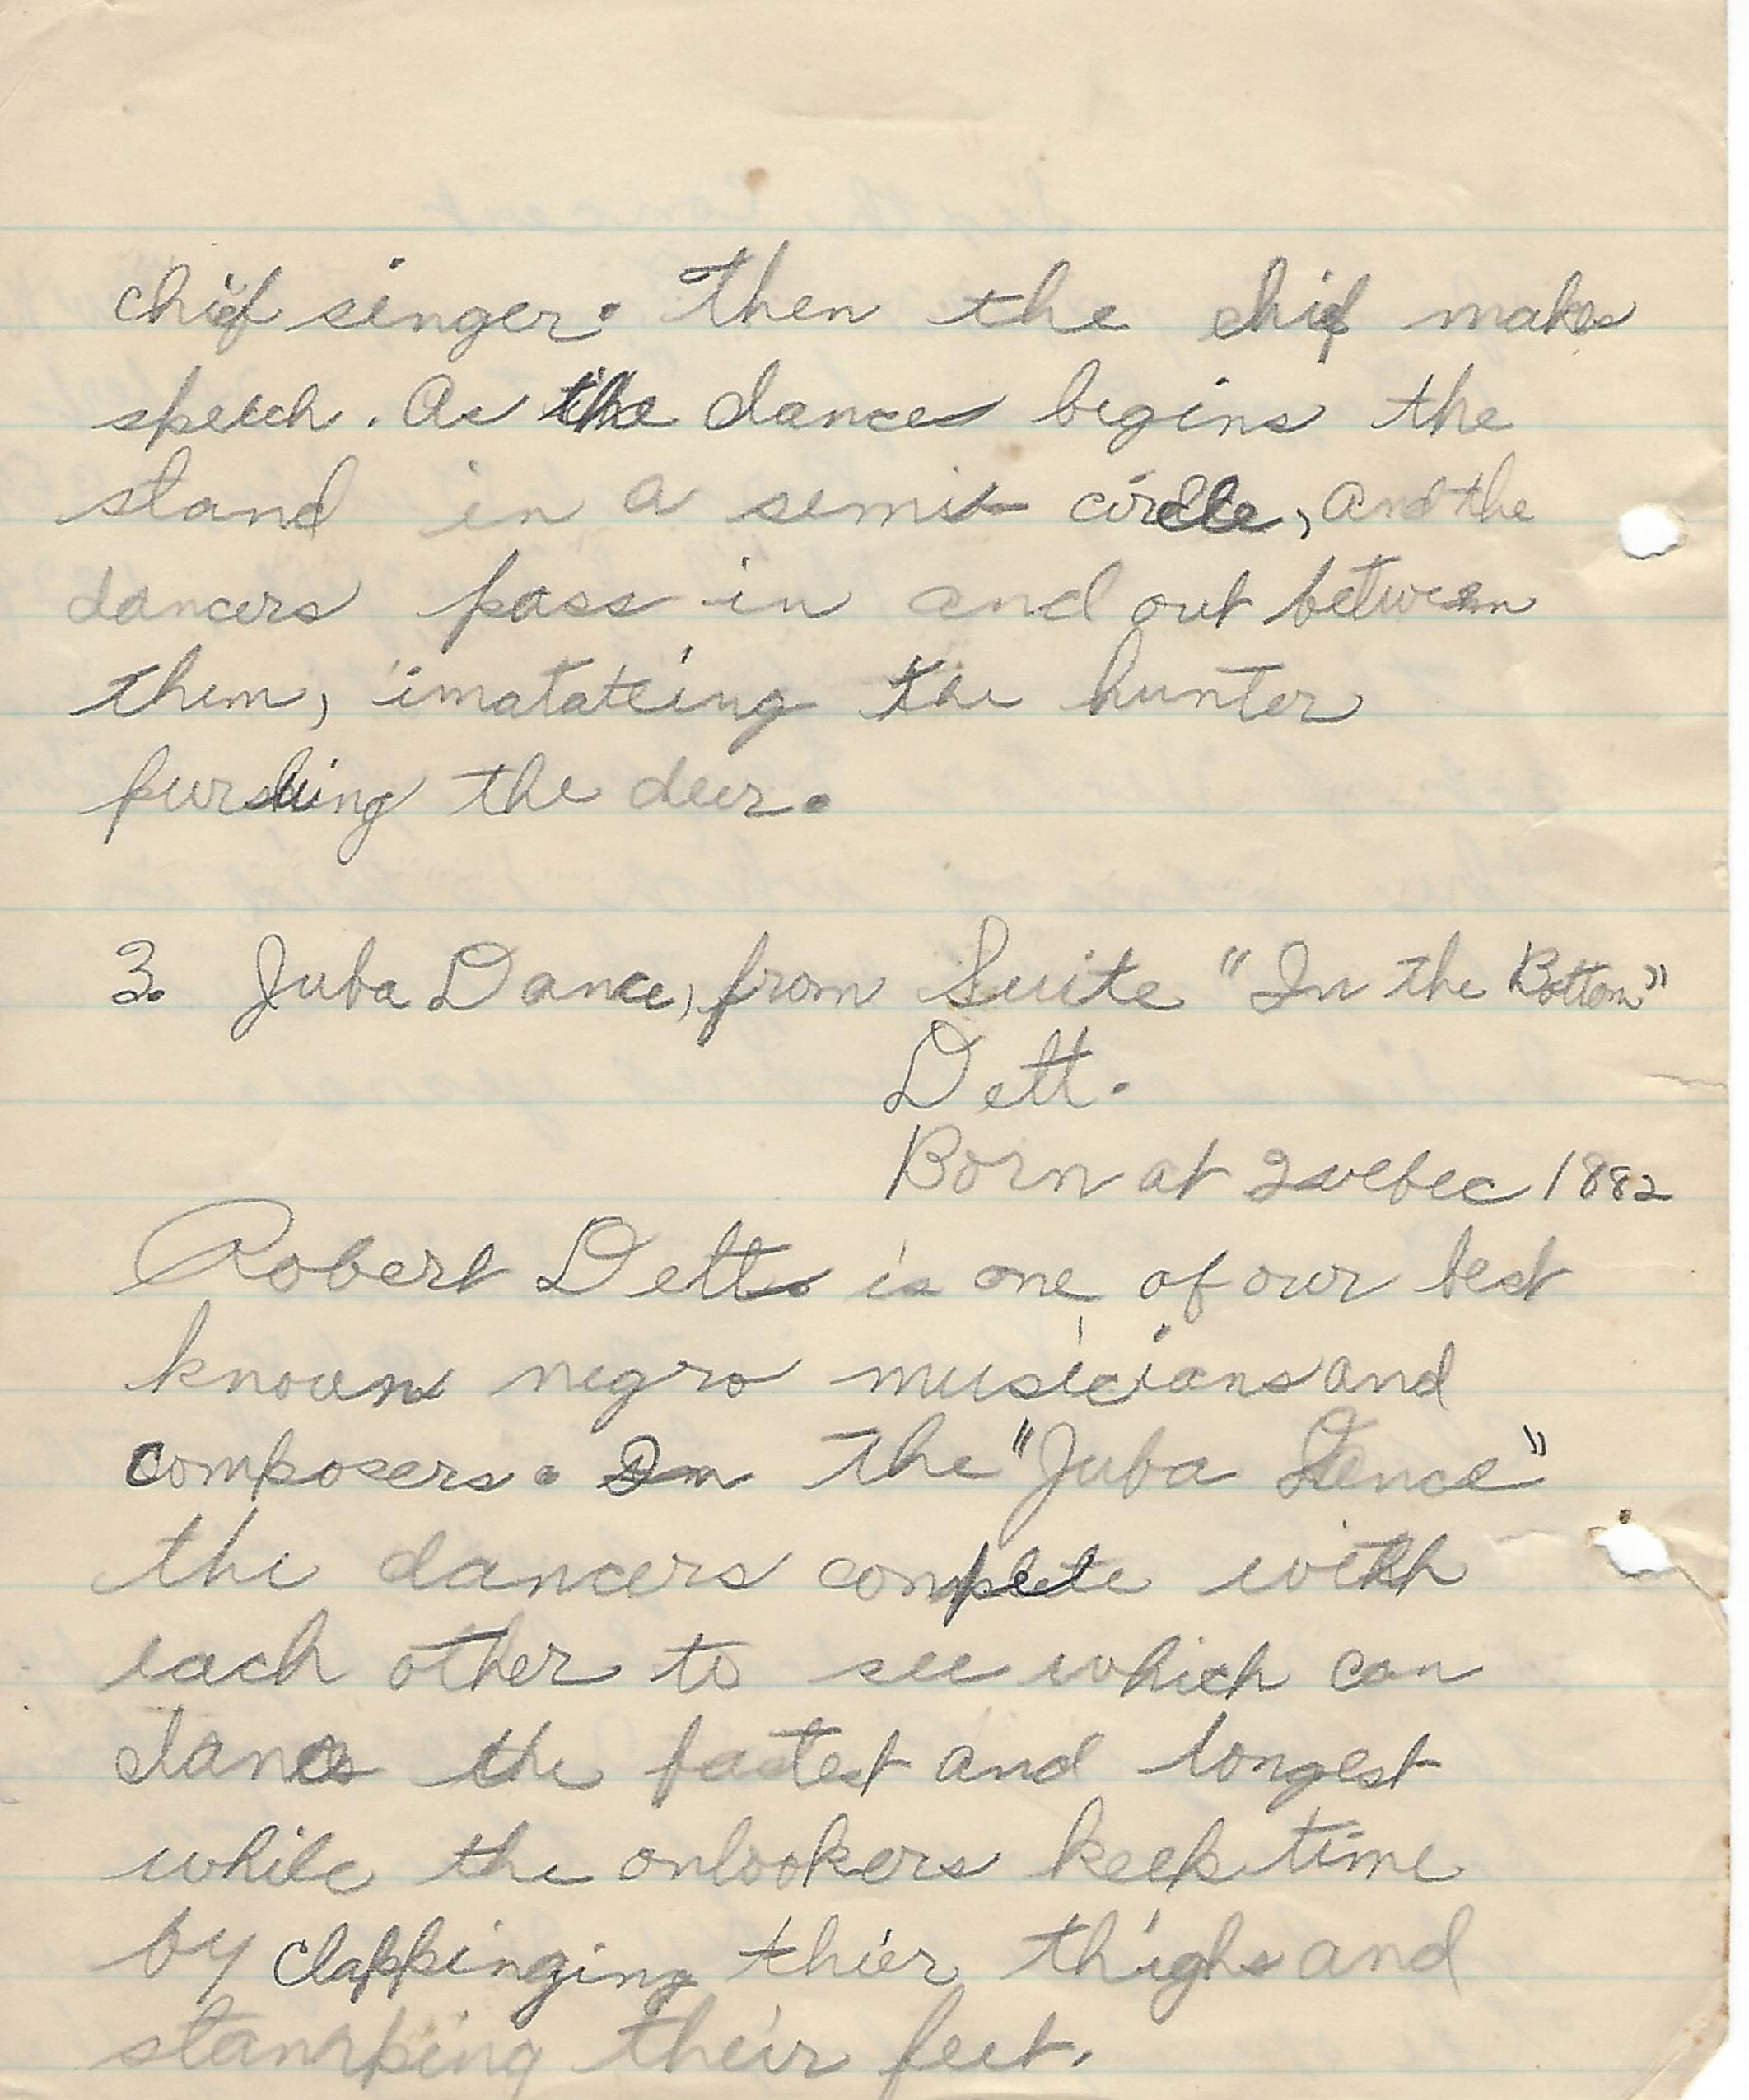 chief singer. Then the chief makes
speech. As the dances begins the
stand in a semi- circle, and the
dancers pass in and out between
them, imatateing the hunter
pursuing the deer.
3. Juba Dance, from Suite "In the Bottom"
Dett.
Born at Quebec 1882
Robert Dett is one of our best
known negro musicians and
composers. In the "Juba Dence"
the dancers complete with
each other to see which can
dance the fastest and longest
while the onlookers keep time
by clappinging thier thighs and
stamping their feet.